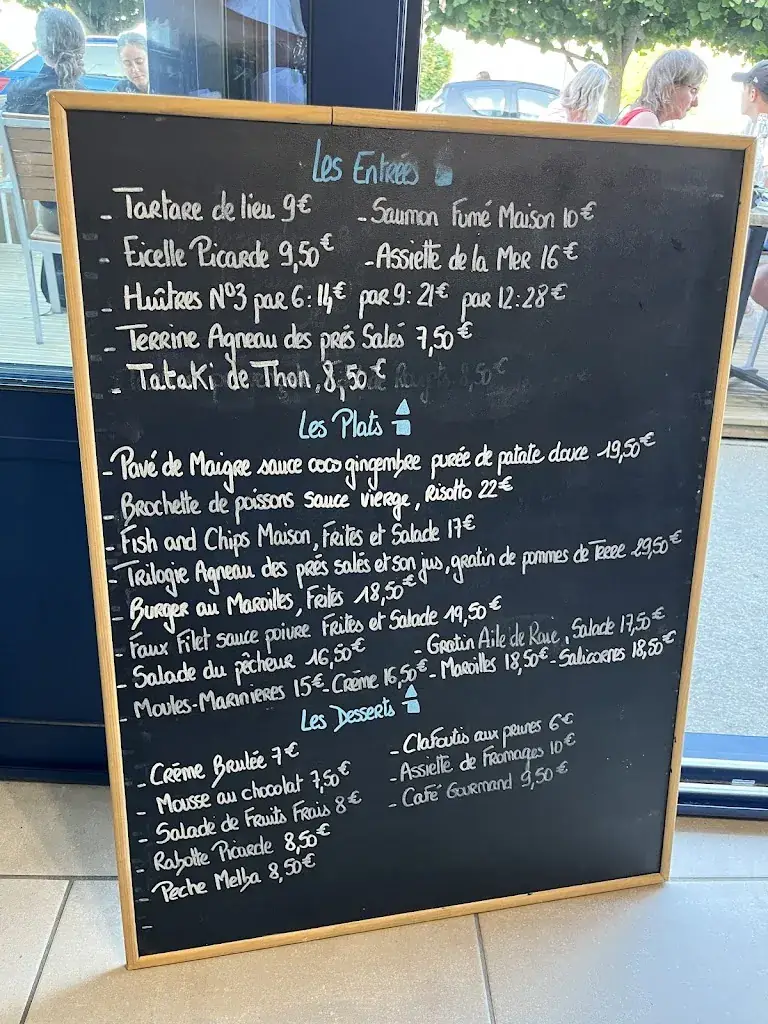 Les Entrées
- Tartare de lieu 9€ - Saumon Fumé Maison 10€
- Ficelle Picarde 9,50€ - Assiette de la Mer 16€
- Huîtres N°3 par 6: 14€ par 9: 21€ par 12: 28€
- Terrine Agneau des prés Salés 7,50€
- Tataki de Thon, 8,50€
Les Plats
- Pavé de Maigre sauce coco gingembre purée de patate douce 19,50€
- Brochette de poissons sauce vierge, Risotto 22€
- Fish and Chips Maison, Frites et Salade 17€
- Trilogie Agneau des prés salés et son jus, gratin de pommes de Terre 29,50€
- Burger au Maroilles, Frites 18,50€
- Faux Filet sauce poivre Frites et Salade 19,50€
- Salade du pêcheur 16,50€ - Gratin Aile de Raie, Salade 17,50€
- Moules-Marinieres 15€ - Crème 16,50€ - Maroilles 18,50€ - Salicornes 18,50€
Les Desserts
- Crème Brulée 7€ - Clafoutis aux prunes 6€
- Mousse au chocolat 7,50€ - Assiette de Fromages 10€
- Salade de Fruits Frais 8€ - Café Gourmand 9,50€
- Rabotte Picarde 8,50€
- Peche Melba 8,50€